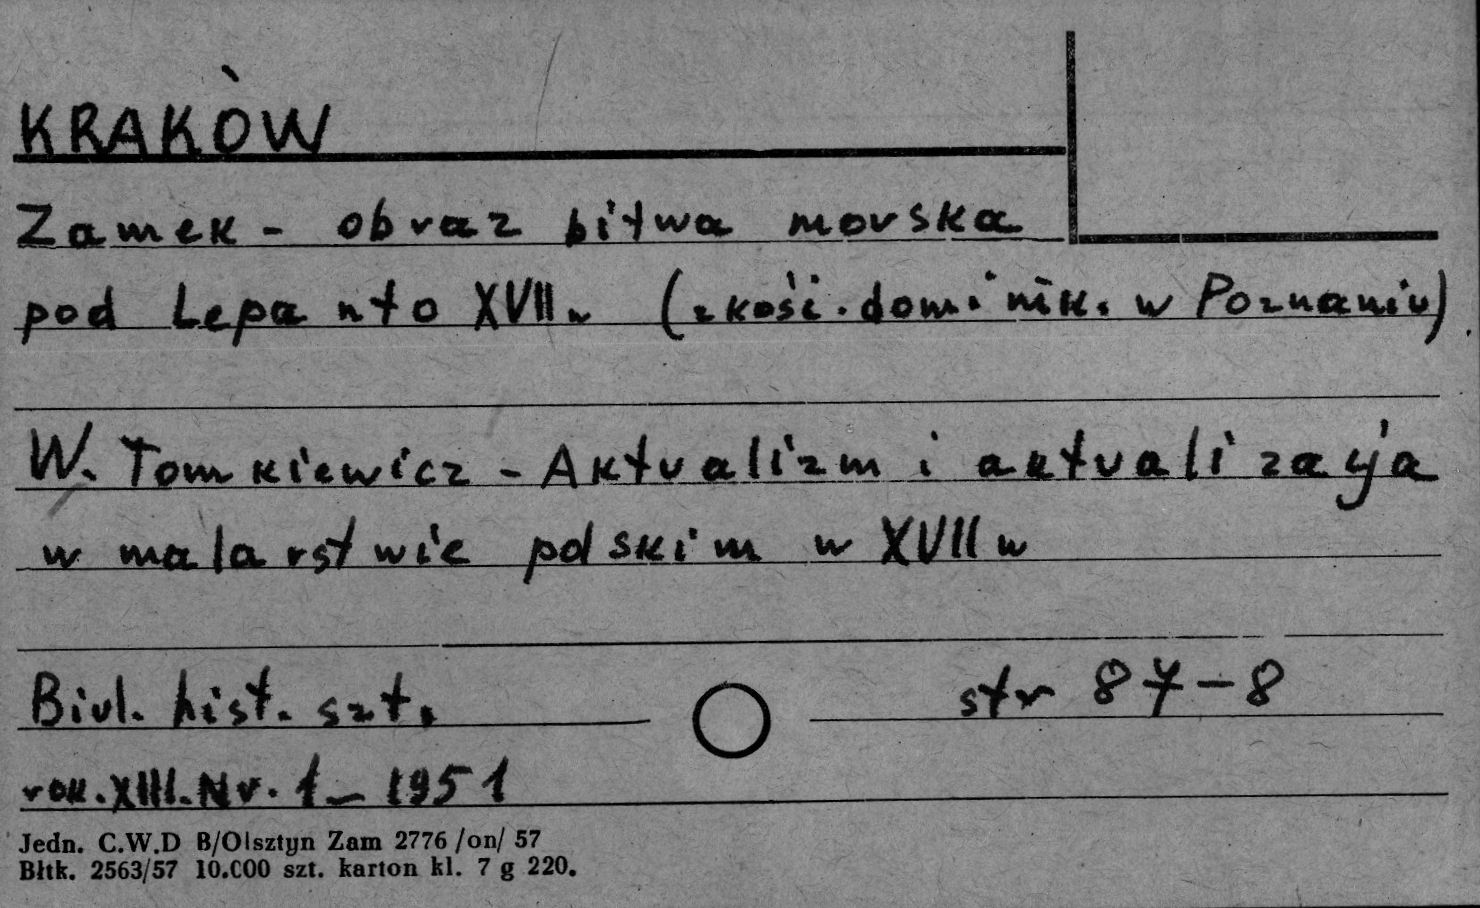 KRAKÓW
Zamek - obraz bitwa morska
pod Lepanto XVII w (z kość. dominik. w Poznaniu)
W. Tomkiewicz - Aktualizm i aktualizacja
w malarstwie polskim w XVII w
Biul. hist. szt. str 87-8
rok. XIII. Nr. 1 - 1951
Jedn. C.W.D B/Olsztyn Zam 2776 /on/ 57
Bltk. 2563/57 10.000 szt. karton kl. 7 g 220.